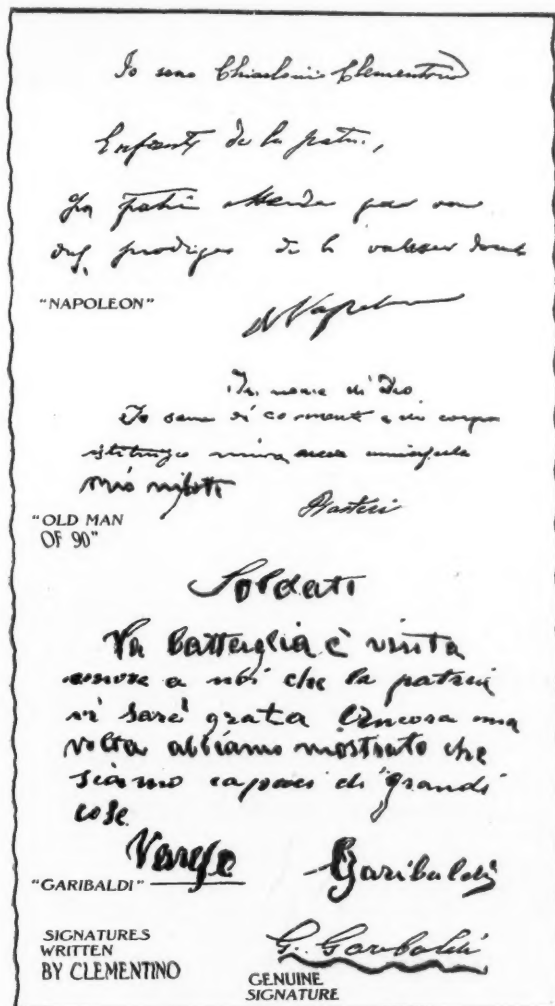 Io sono Clementino
Enfants de la patrie,
La patrie attend par
des prodiges de la valeur
"NAPOLEON"
Napoleon
In nome di Dio
Io sano di mente e di corpo
mia unica
mio nipoti
"OLD MAN
OF 90"
Soldati
La battaglia è vinta
onore a noi che la patria
vi sarà grata Ancora una
volta abbiamo mostrato che
siamo capaci di grandi
cose
Varese Garibaldi
"GARIBALDI"
SIGNATURES
WRITTEN
BY CLEMENTINO
G. Garibaldi
GENUINE
SIGNATURE